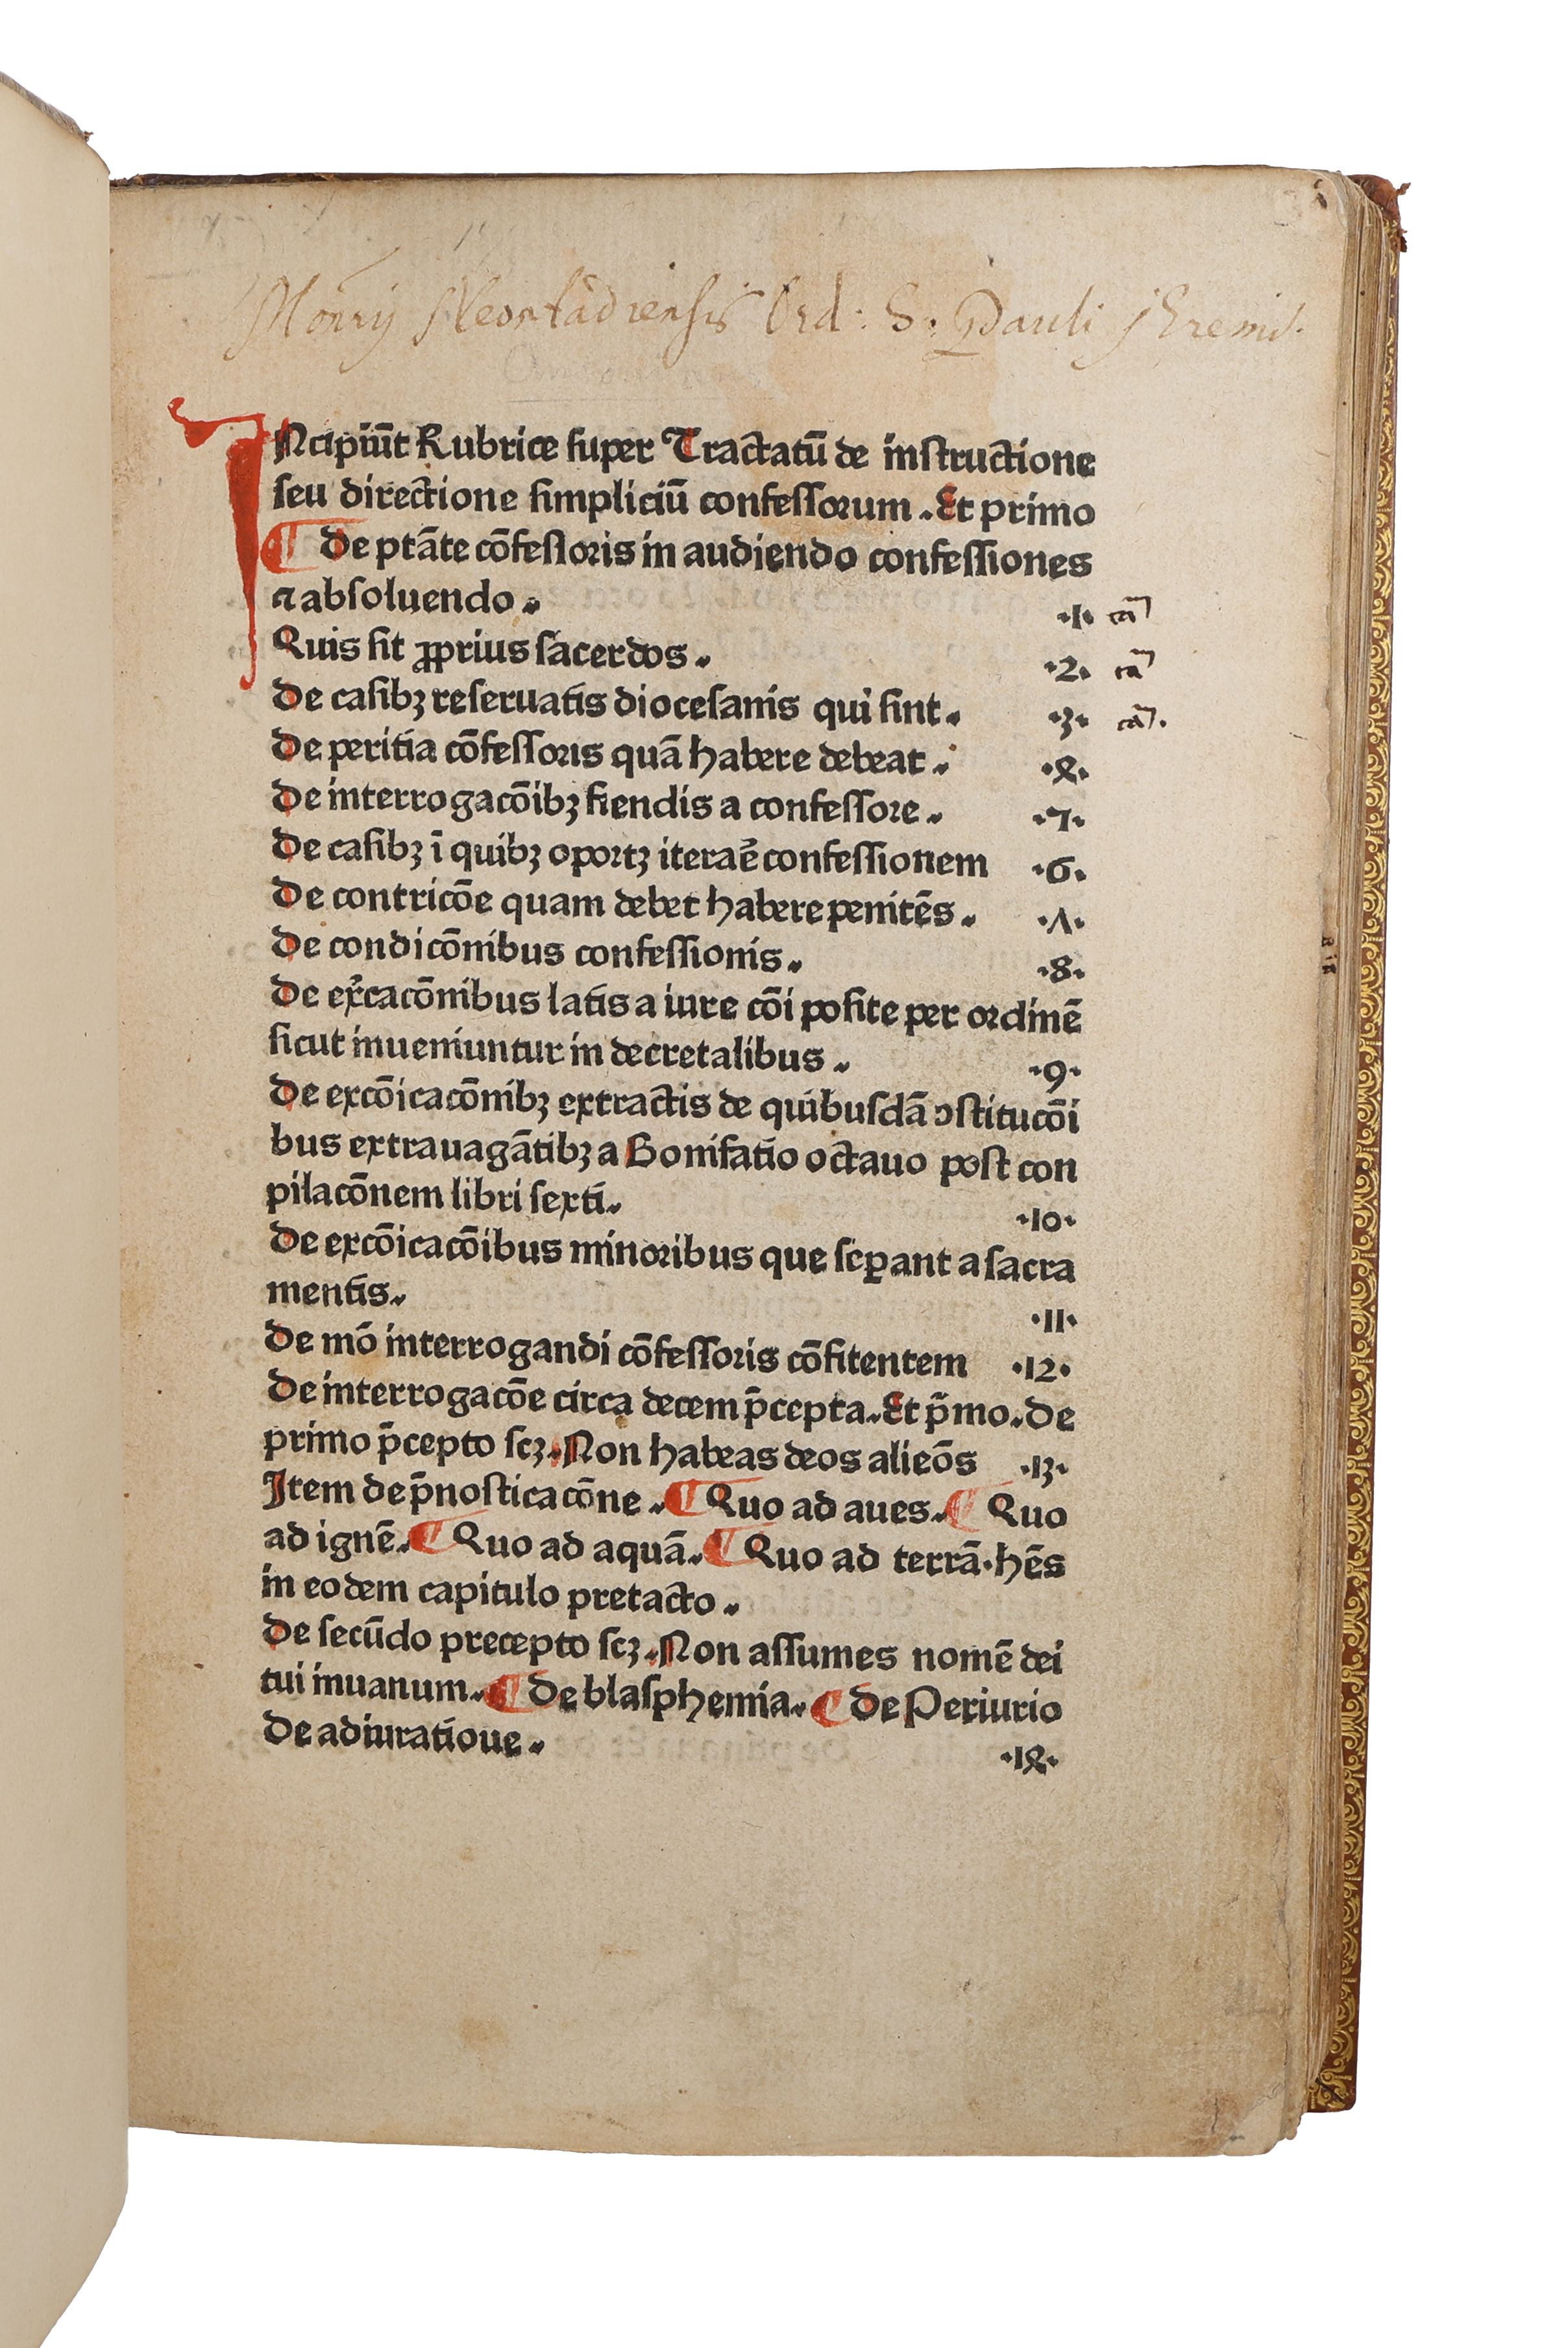 Monrij Neostadiensis Ord: S. Pauli j Eremit.
INcipiūt Rubrice super Tractatū de instructione
seu directione simpliciū confessorum. Et primo
¶ De ptāte cōfessoris in audiendo confessiones
⁊ absoluendo. ·1· caꝫ
Quis sit ꝓprius sacerdos. ·2· ca
De casibꝫ reseruatis diocesanis qui sint. ·3· ca.
De peritia cōfessoris quā habere debeat. ·4·
De interrogacōibꝫ fiendis a confessore. ·5·
De casibꝫ ī quibꝫ oportꝫ iteraē confessionem ·6·
De contricōe quam debet habere penitēs. ·7·
De condicōnibus confessionis. ·8·
De ex̄cacōnibus latis a iure cōi posite per ordinē
sicut inueniuntur in decretalibus. ·9·
De excōicacōnibꝫ extractis de quibusdā ↄstitucōi
bus extrauagātibꝫ a Bonifatio octauo post con
pilacōnem libri sexti. ·10·
De excōicacōibus minoribus que seꝑant a sacra
mentis. ·11·
De mō interrogandi cōfessoris cōfitentem ·12·
De interrogacōe circa decem p̄cepta. Et p̄mo. De
primo p̄cepto scꝫ. Non habeas deos alieōs ·13·
Item de p̄nosticacōne. ¶ Quo ad aues. ¶ Quo
ad ignē. ¶ Quo ad aquā. ¶ Quo ad terrā. hēs
in eodem capitulo pretacto.
De secūdo precepto scꝫ. Non assumes nomē dei
tui inuanum. ¶ De blasphemia. ¶ De Periurio
De adiuratioue. ·14·